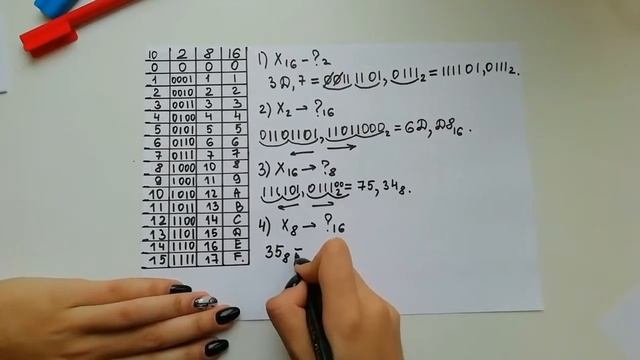 10 2 8 16
0 0 0 0
1 0001 1 1
2 0010 2 2
3 0011 3 3
4 0100 4 4
5 0101 5 5
6 0110 6 6
7 0111 7 7
8 1000 10 8
9 1001 11 9
10 1010 12 A
11 1011 13 B
12 1100 14 C
13 1101 15 D
14 1110 16 E
15 1111 17 F
1) X₁₆ - ?₂
3D,7 = 00111101,0111₂ = 111101,0111₂.
2) X₂ → ?₁₆
01101101,11011000₂ = 6D,D8₁₆.
3) X₁₆ → ?₈
111101,011100₂ = 75,34₈.
4) X₈ → ?₁₆
35₈ =